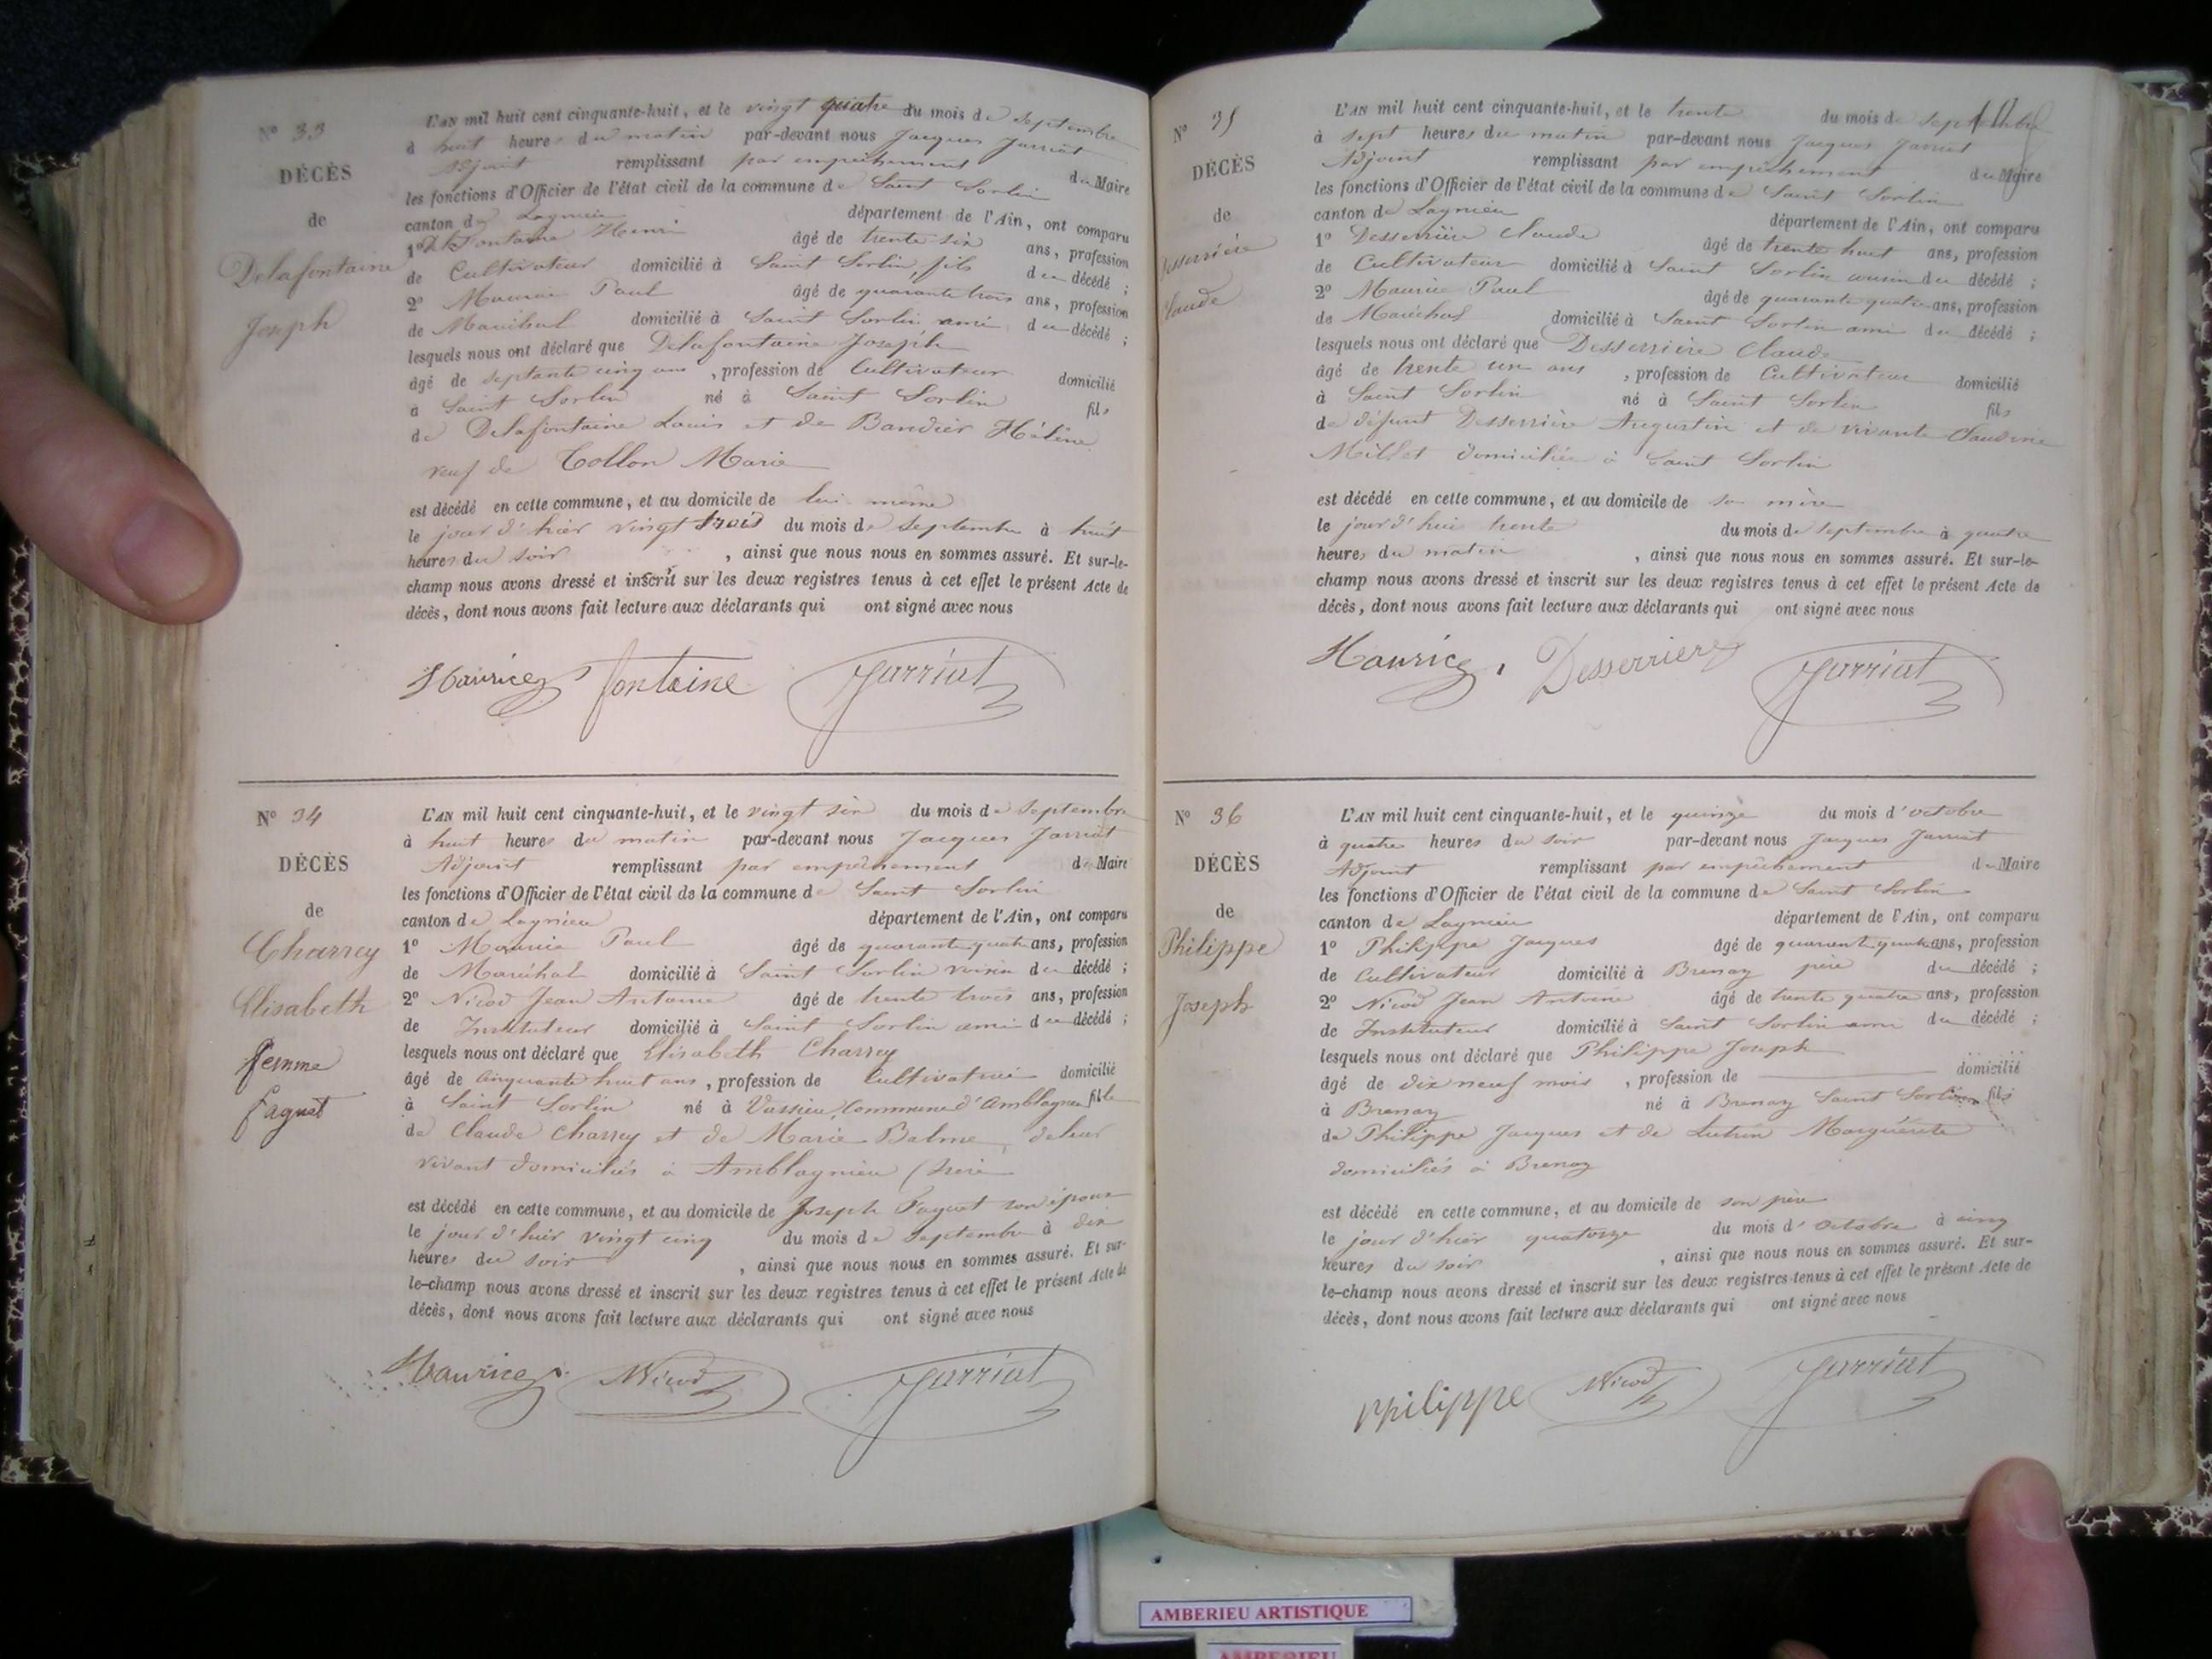 N° 33
DÉCÈS
de
Delafontaine
Joseph
L'AN mil huit cent cinquante-huit, et le vingt quatre du mois de septembre
à huit heures du matin par-devant nous Jacques Jarriat
Adjoint remplissant par empêchement du Maire
les fonctions d'Officier de l'état civil de la commune de Saint Sorlin
canton de Lagnieu département de l'Ain, ont comparu
1° Delafontaine Henri âgé de trente six ans, profession
de Cultivateur domicilié à Saint Sorlin, fils du décédé ;
2° Maurice Paul âgé de quarante trois ans, profession
de Maréchal domicilié à Saint Sorlin ami du décédé ;
lesquels nous ont déclaré que Delafontaine Joseph
âgé de septante cinq ans, profession de Cultivateur domicilié
à Saint Sorlin né à Saint Sorlin fils
de Delafontaine Louis et de Bandier Hélène
veuf de Collon Marie
est décédé en cette commune, et au domicile de lui même
le jour d'hier vingt trois du mois de septembre à huit
heures du soir, ainsi que nous nous en sommes assuré. Et sur-le-
champ nous avons dressé et inscrit sur les deux registres tenus à cet effet le présent Acte de
décès, dont nous avons fait lecture aux déclarants qui ont signé avec nous
Maurice fontaine Jarriat
N° 34
DÉCÈS
de
Charrey
Elisabeth
femme
faguet
L'AN mil huit cent cinquante-huit, et le vingt six du mois de septembre
à huit heures du matin par-devant nous Jacques Jarriat
Adjoint remplissant par empêchement du Maire
les fonctions d'Officier de l'état civil de la commune de Saint Sorlin
canton de Lagnieu département de l'Ain, ont comparu
1° Maurice Paul âgé de quarante quatre ans, profession
de Maréchal domicilié à Saint Sorlin voisin du décédé ;
2° Nicod Jean Antoine âgé de trente trois ans, profession
de Instituteur domicilié à Saint Sorlin ami du décédé ;
lesquels nous ont déclaré que Elisabeth Charrey
âgé de cinquante huit ans, profession de Cultivatrice domicilié
à Saint Sorlin né à Vassieu, Commune d'Amblagnieu fille
de Claude Charrey et de Marie Balme, de leur
vivant domiciliés à Amblagnieu (Isère
est décédé en cette commune, et au domicile de Joseph Faguet son époux
le jour d'hier vingt cinq du mois de septembre à dix
heures du soir, ainsi que nous nous en sommes assuré. Et sur-
le-champ nous avons dressé et inscrit sur les deux registres tenus à cet effet le présent Acte de
décès, dont nous avons fait lecture aux déclarants qui ont signé avec nous
Maurice Nicod Jarriat
N° 35
DÉCÈS
de
Desserrière
Claude
L'AN mil huit cent cinquante-huit, et le trente du mois de septembre
à sept heures du matin par-devant nous Jacques Jarriat
Adjoint remplissant par empêchement du Maire
les fonctions d'Officier de l'état civil de la commune de Saint Sorlin
canton de Lagnieu département de l'Ain, ont comparu
1° Desserrière Claude âgé de trente huit ans, profession
de Cultivateur domicilié à Saint Sorlin cousin du décédé ;
2° Maurice Paul âgé de quarante quatre ans, profession
de Maréchal domicilié à Saint Sorlin ami du décédé ;
lesquels nous ont déclaré que Desserrière Claude
âgé de trente un ans, profession de Cultivateur domicilié
à Saint Sorlin né à Saint Sorlin fils
de défunt Desserrière Augustin et de vivante Claudine
Millet domiciliée à Saint Sorlin
est décédé en cette commune, et au domicile de sa mère
le jour d'hui trente du mois de septembre à quatre
heures du matin, ainsi que nous nous en sommes assuré. Et sur-le-
champ nous avons dressé et inscrit sur les deux registres tenus à cet effet le présent Acte de
décès, dont nous avons fait lecture aux déclarants qui ont signé avec nous
Maurice, Desserriere Jarriat
N° 36
DÉCÈS
de
Philippe
Joseph
L'AN mil huit cent cinquante-huit, et le quinze du mois d'octobre
à quatre heures du soir par-devant nous Jacques Jarriat
Adjoint remplissant par empêchement du Maire
les fonctions d'Officier de l'état civil de la commune de Saint Sorlin
canton de Lagnieu département de l'Ain, ont comparu
1° Philippe Jacques âgé de quarante quatre ans, profession
de Cultivateur domicilié à Brenaz père du décédé ;
2° Nicod Jean Antoine âgé de trente quatre ans, profession
de Instituteur domicilié à Saint Sorlin ami du décédé ;
lesquels nous ont déclaré que Philippe Joseph
âgé de dix neuf mois, profession de domicilié
à Brenaz né à Brenaz Saint Sorlin fils
de Philippe Jacques et de Lutrin Marguerite
domiciliés à Brenaz
est décédé en cette commune, et au domicile de son père
le jour d'hier quatorze du mois d'octobre à cinq
heures du soir, ainsi que nous nous en sommes assuré. Et sur-
le-champ nous avons dressé et inscrit sur les deux registres tenus à cet effet le présent Acte de
décès, dont nous avons fait lecture aux déclarants qui ont signé avec nous
philippe Nicod Jarriat
AMBERIEU ARTISTIQUE
AMBERIEU